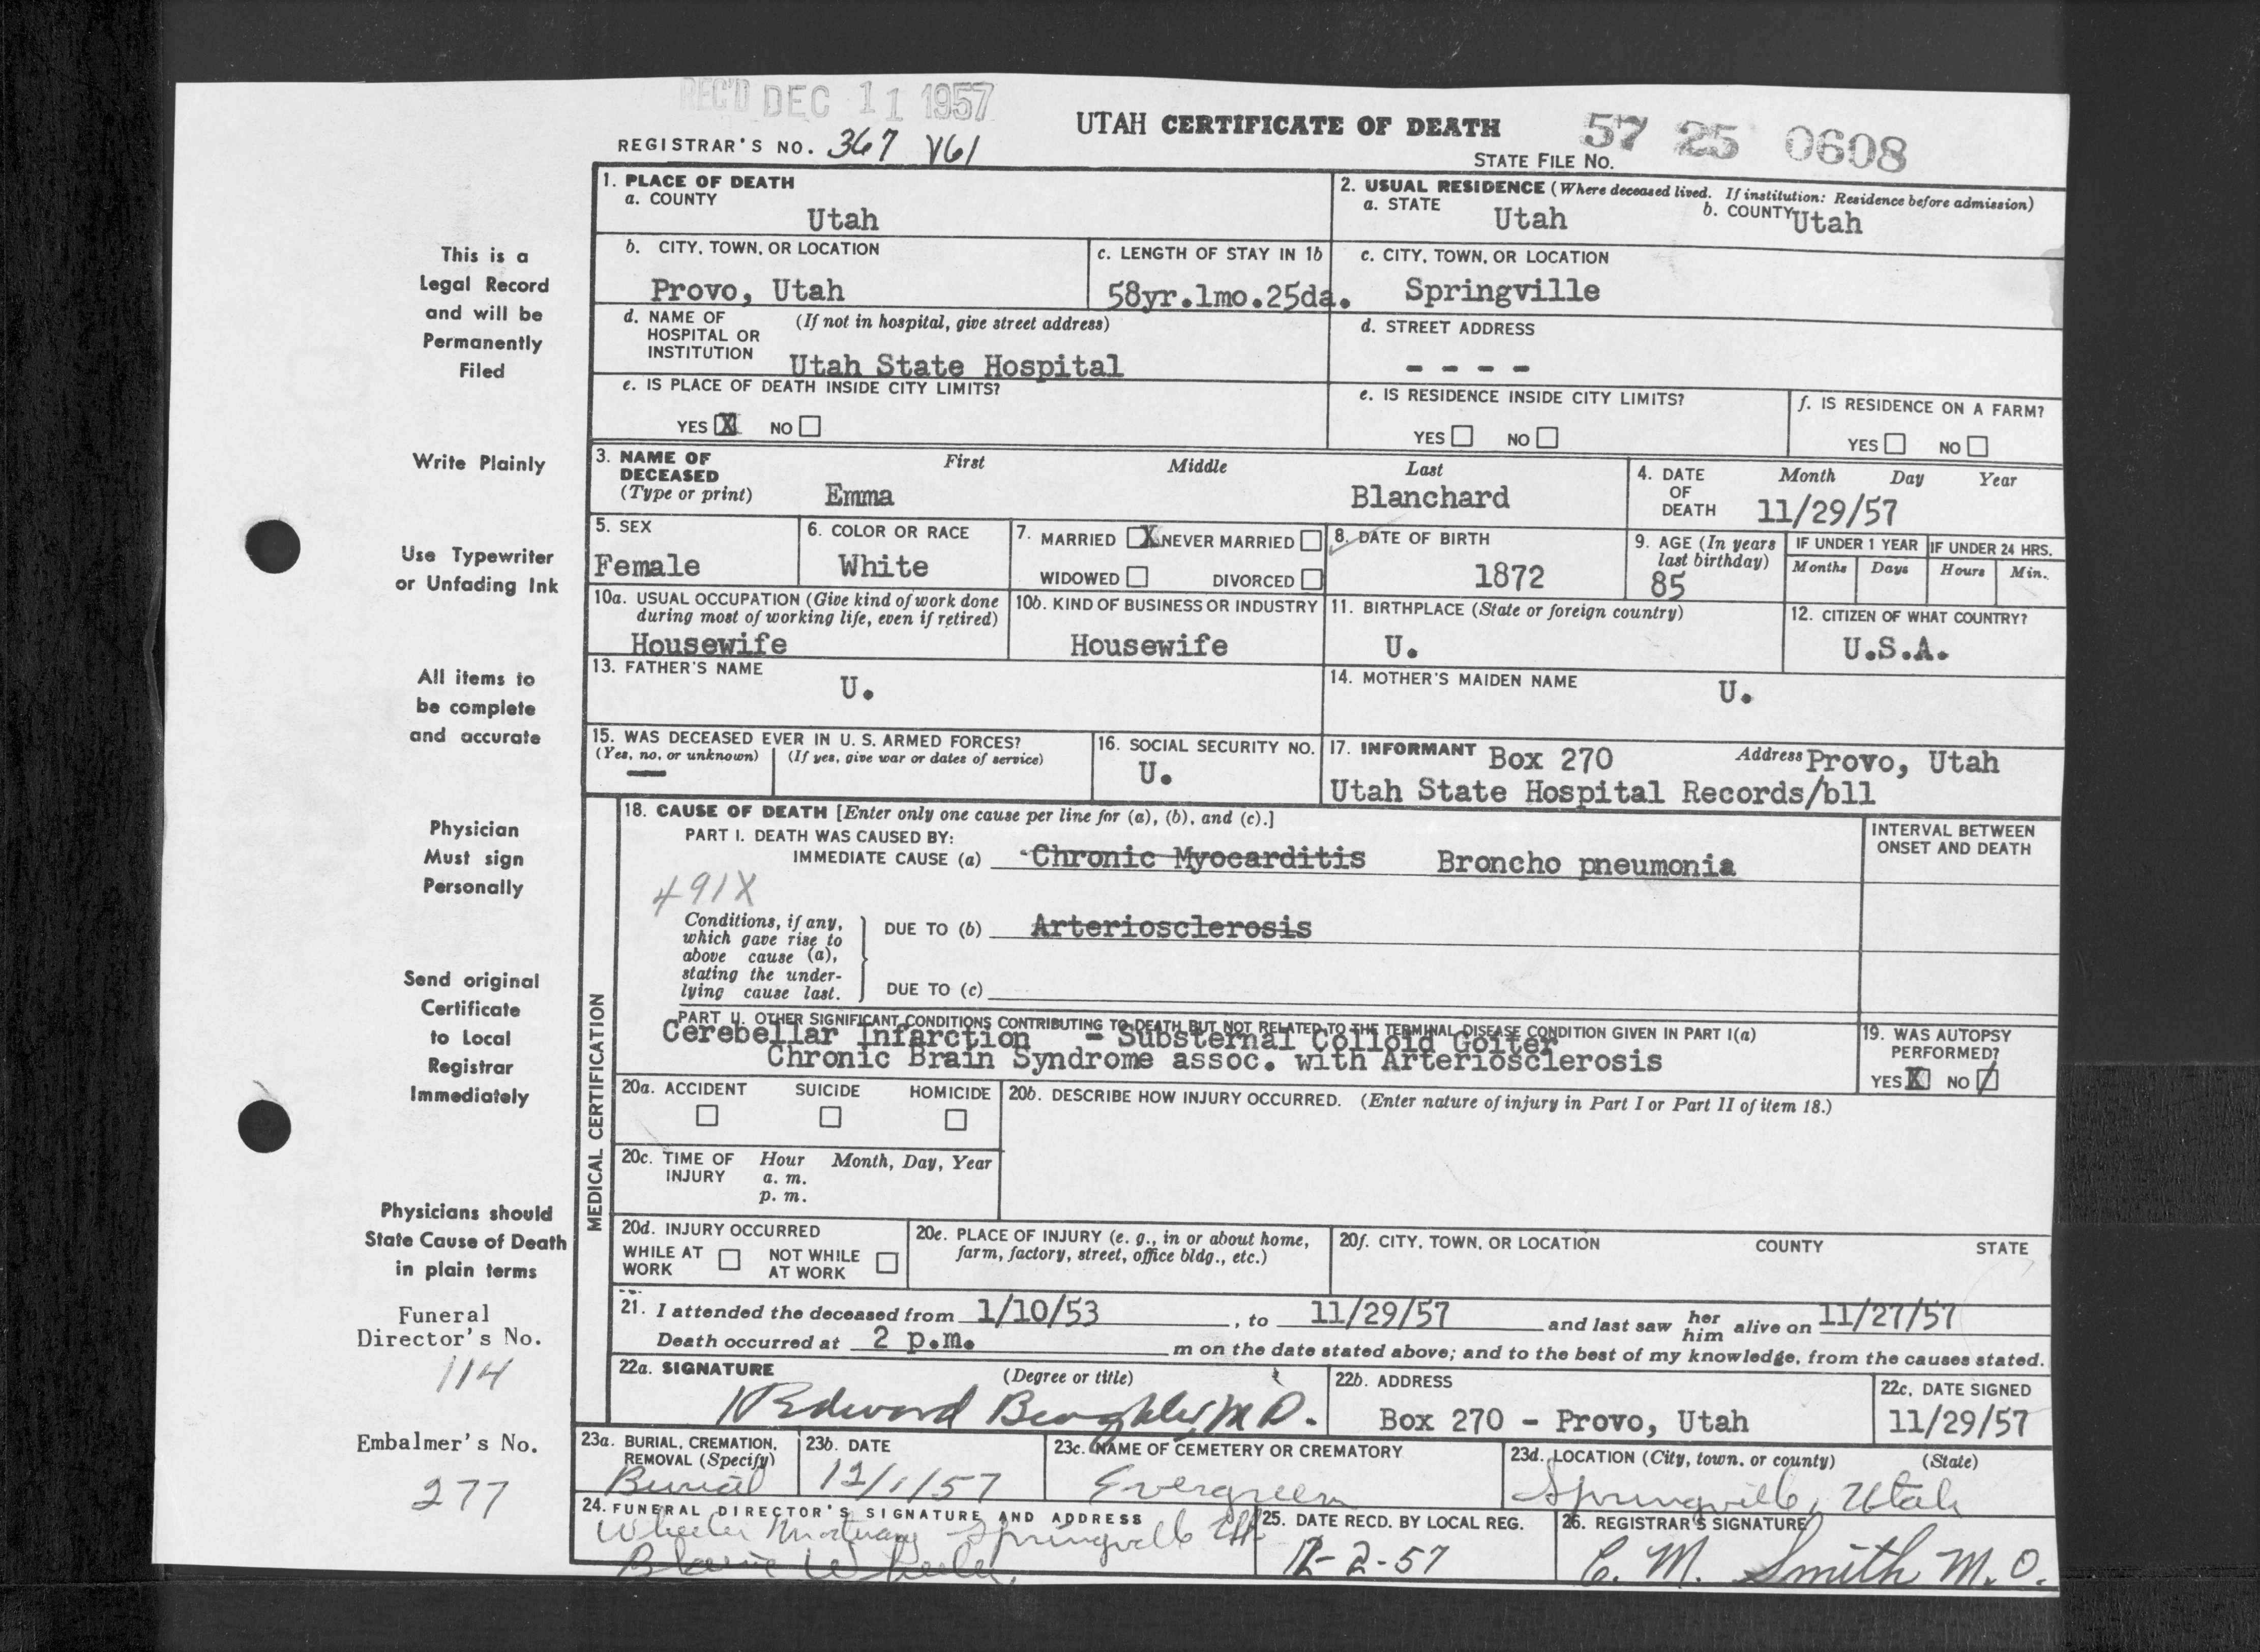 REC'D DEC 11 1957
UTAH CERTIFICATE OF DEATH
57 25 0608
REGISTRAR'S NO. 367 V61
STATE FILE NO.
1. PLACE OF DEATH
a. COUNTY
Utah
2. USUAL RESIDENCE (Where deceased lived. If institution: Residence before admission)
a. STATE Utah b. COUNTY Utah
b. CITY, TOWN, OR LOCATION
Provo, Utah
c. LENGTH OF STAY IN 1b
58yr.1mo.25da.
c. CITY, TOWN, OR LOCATION
Springville
d. NAME OF (If not in hospital, give street address)
HOSPITAL OR
INSTITUTION Utah State Hospital
d. STREET ADDRESS
- - - -
e. IS PLACE OF DEATH INSIDE CITY LIMITS?
YES X NO
e. IS RESIDENCE INSIDE CITY LIMITS?
YES NO
f. IS RESIDENCE ON A FARM?
YES NO
3. NAME OF DECEASED
(Type or print)
First Middle Last
Emma Blanchard
4. DATE OF DEATH
Month Day Year
11/29/57
5. SEX
Female
6. COLOR OR RACE
White
7. MARRIED X NEVER MARRIED
WIDOWED DIVORCED
8. DATE OF BIRTH
1872
9. AGE (In years
last birthday)
85
IF UNDER 1 YEAR
Months Days
IF UNDER 24 HRS.
Hours Min.
10a. USUAL OCCUPATION (Give kind of work done
during most of working life, even if retired)
Housewife
10b. KIND OF BUSINESS OR INDUSTRY
Housewife
11. BIRTHPLACE (State or foreign country)
U.
12. CITIZEN OF WHAT COUNTRY?
U.S.A.
13. FATHER'S NAME
U.
14. MOTHER'S MAIDEN NAME
U.
15. WAS DECEASED EVER IN U. S. ARMED FORCES?
(Yes, no, or unknown) (If yes, give war or dates of service)
—
16. SOCIAL SECURITY NO.
U.
17. INFORMANT Box 270 Address Provo, Utah
Utah State Hospital Records/bll
MEDICAL CERTIFICATION
18. CAUSE OF DEATH [Enter only one cause per line for (a), (b), and (c).]
PART I. DEATH WAS CAUSED BY:
IMMEDIATE CAUSE (a) Chronic Myocarditis Broncho pneumonia
INTERVAL BETWEEN
ONSET AND DEATH
491X
Conditions, if any,
which gave rise to
above cause (a),
stating the under-
lying cause last.
DUE TO (b) Arteriosclerosis
DUE TO (c)
PART II. OTHER SIGNIFICANT CONDITIONS CONTRIBUTING TO DEATH BUT NOT RELATED TO THE TERMINAL DISEASE CONDITION GIVEN IN PART I(a)
Cerebellar Infarction - Substernal Colloid Goiter
Chronic Brain Syndrome assoc. with Arteriosclerosis
19. WAS AUTOPSY
PERFORMED?
YES X NO /
20a. ACCIDENT SUICIDE HOMICIDE
20b. DESCRIBE HOW INJURY OCCURRED. (Enter nature of injury in Part I or Part II of item 18.)
20c. TIME OF INJURY
Hour Month, Day, Year
a. m.
p. m.
20d. INJURY OCCURRED
WHILE AT WORK NOT WHILE AT WORK
20e. PLACE OF INJURY (e. g., in or about home,
farm, factory, street, office bldg., etc.)
20f. CITY, TOWN, OR LOCATION COUNTY STATE
21. I attended the deceased from 1/10/53, to 11/29/57 and last saw her him alive on 11/27/57
Death occurred at 2 p.m. m on the date stated above; and to the best of my knowledge, from the causes stated.
22a. SIGNATURE (Degree or title)
Edward M.D.
22b. ADDRESS
Box 270 - Provo, Utah
22c. DATE SIGNED
11/29/57
23a. BURIAL, CREMATION,
REMOVAL (Specify)
Burial
23b. DATE
12/1/57
23c. NAME OF CEMETERY OR CREMATORY
Evergreen
23d. LOCATION (City, town, or county) (State)
Springville, Utah
24. FUNERAL DIRECTOR'S SIGNATURE AND ADDRESS
Wheeler Mortuary Springville Ut.
Blaine Wheeler
25. DATE RECD. BY LOCAL REG.
12-2-57
26. REGISTRAR'S SIGNATURE
C. M. Smith M.D.
This is a
Legal Record
and will be
Permanently
Filed
Write Plainly
Use Typewriter
or Unfading Ink
All items to
be complete
and accurate
Physician
Must sign
Personally
Send original
Certificate
to Local
Registrar
Immediately
Physicians should
State Cause of Death
in plain terms
Funeral
Director's No.
114
Embalmer's No.
277